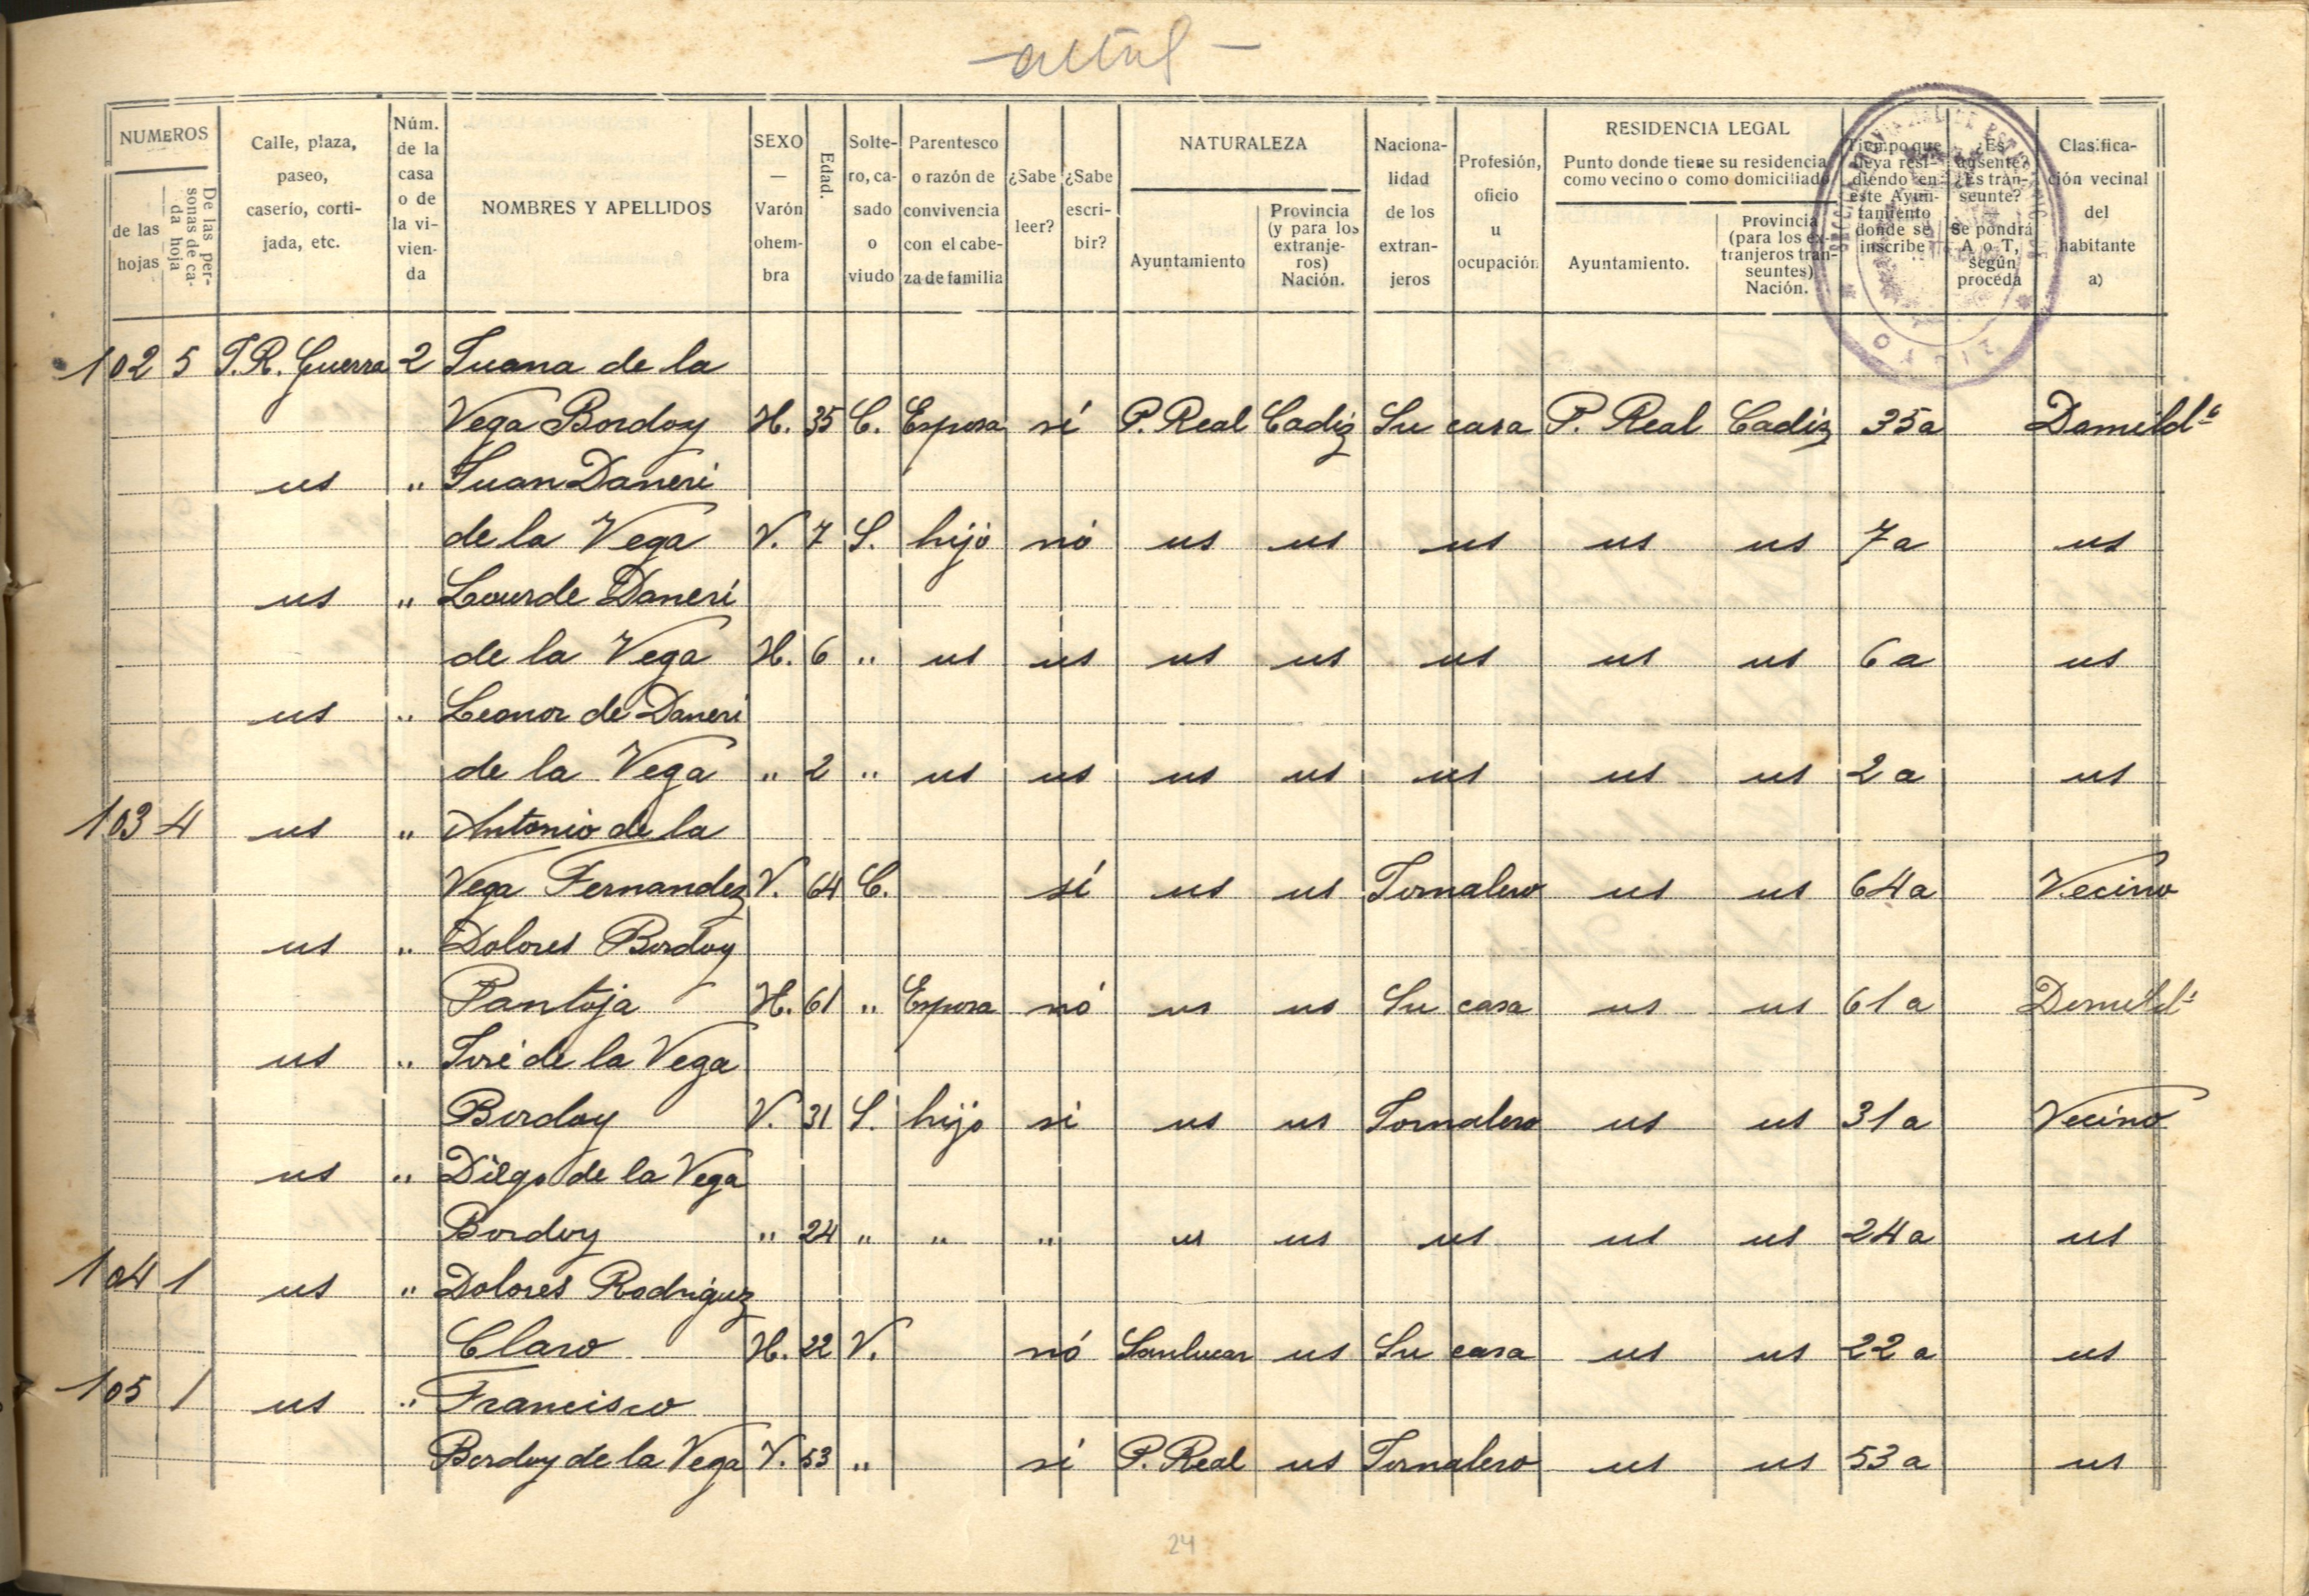 NUMEROS
de las hojas
De las personas de cada hoja
Calle, plaza, paseo, caserío, cortijada, etc.
Núm. de la casa o de la vivienda
NOMBRES Y APELLIDOS
SEXO — Varón o hembra
Edad.
Soltero, casado o viudo
Parentesco o razón de convivencia con el cabeza de familia
¿Sabe leer?
¿Sabe escribir?
NATURALEZA
Ayuntamiento
Provincia (y para los extranjeros) Nación.
Nacionalidad de los extranjeros
Profesión, oficio u ocupación
RESIDENCIA LEGAL
Punto donde tiene su residencia como vecino o como domiciliado
Ayuntamiento.
Provincia (para los extranjeros transeuntes) Nación.
Tiempo que lleva residiendo en este Ayuntamiento donde se inscribe
¿Es ausente? ¿Es transeunte? Se pondrá A o T, según proceda
Clasificación vecinal del habitante a)
CADIZ
102 5 T.R. Guerra 2 Juana de la
Vega Bordoy H. 35 C. Esposa sí P. Real Cadiz Su casa P. Real Cadiz 35a Domildª
us " Juan Daneri
de la Vega V. 7 S. hijo nó us us us us us 7a us
us " Lourde Daneri
de la Vega H. 6 " us us us us us us us 6a us
us " Leonor de Daneri
de la Vega " 2 " us us us us us us us 2a us
103 4 us " Antonio de la
Vega Fernandez V. 64 C. sí us us Jornalero us us 64a Vecino
us " Dolores Bordoy
Pantoja H. 61 " Esposa nó us us Su casa us us 61a Domildª
us " José de la Vega
Bordoy V. 31 S. hijo si us us Jornalero us us 31a Vecino
us " Diego de la Vega
Bordoy " 24 " " " us us us us us 24a us
104 1 us " Dolores Rodriguez
Claro H. 22 V. nó Sanlucar us Su casa us us 22a us
105 1 us " Francisco
Bordoy de la Vega V. 53 " sí P. Real us Jornalero us us 53a us
24